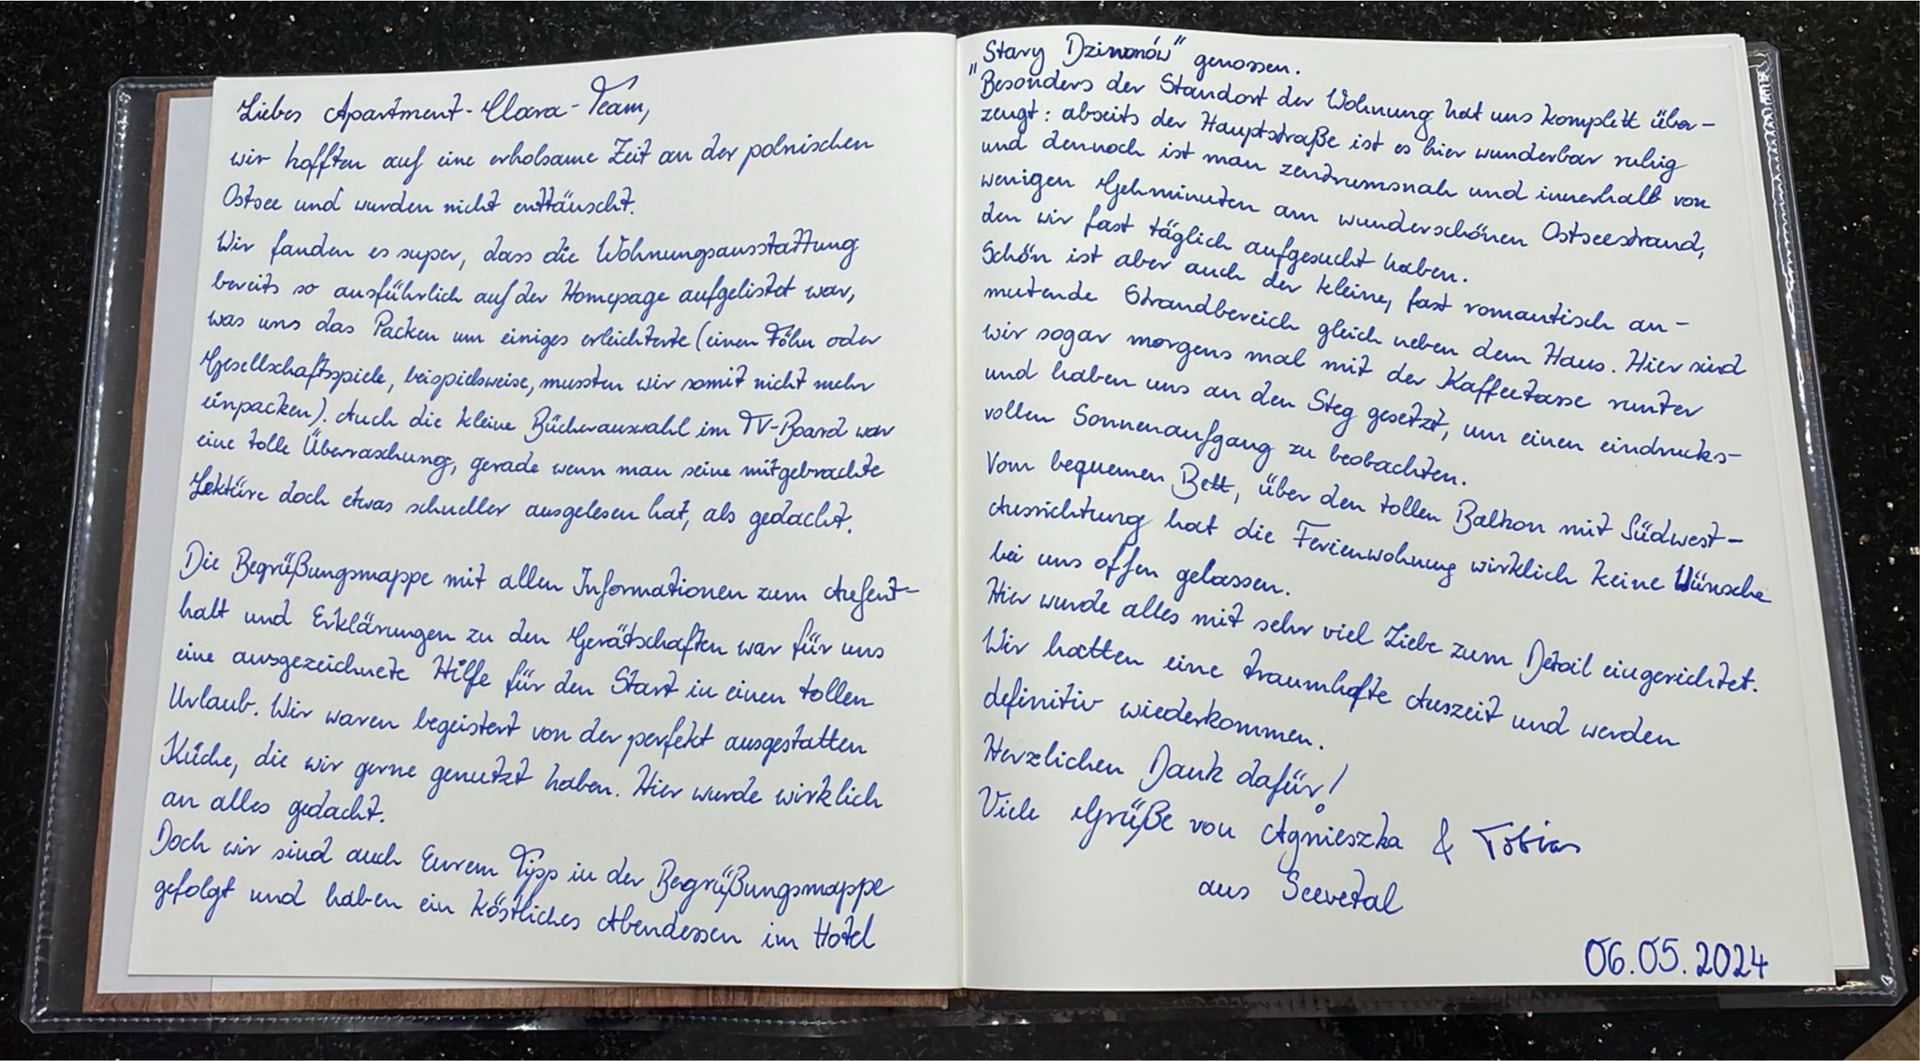 Liebes Apartment-Clara-Team,
wir hofften auf eine erholsame Zeit an der polnischen
Ostsee und wurden nicht enttäuscht.
Wir fanden es super, dass die Wohnungsausstattung
bereits so ausführlich auf der Homepage aufgelistet war,
was uns das Packen um einiges erleichterte (einen Föhn oder
Gesellschaftsspiele, beispielsweise, mussten wir somit nicht mehr
einpacken). Auch die kleine Bücherauswahl im TV-Board war
eine tolle Überraschung, gerade wenn man seine mitgebrachte
Lektüre doch etwas schneller ausgelesen hat, als gedacht.
Die Begrüßungsmappe mit allen Informationen zum Aufent-
halt und Erklärungen zu den Gerätschaften war für uns
eine ausgezeichnete Hilfe für den Start in einen tollen
Urlaub. Wir waren begeistert von der perfekt ausgestatten
Küche, die wir gerne genutzt haben. Hier wurde wirklich
an alles gedacht.
Doch wir sind auch Eurem Tipp in der Begrüßungsmappe
gefolgt und haben ein köstliches Abendessen im Hotel
„Stary Dziwnów" genossen.
Besonders der Standort der Wohnung hat uns komplett über-
zeugt: abseits der Hauptstraße ist es hier wunderbar ruhig
und dennoch ist man zentrumsnah und innerhalb von
wenigen Gehminuten am wunderschönen Ostseestrand,
den wir fast täglich aufgesucht haben.
Schön ist aber auch der kleine, fast romantisch an-
mutende Strandbereich gleich neben dem Haus. Hier sind
wir sogar morgens mal mit der Kaffeetasse runter
und haben uns an den Steg gesetzt, um einen eindrucks-
vollen Sonnenaufgang zu beobachten.
Vom bequemen Bett, über den tollen Balkon mit Südwest-
Ausrichtung hat die Ferienwohnung wirklich keine Wünsche
bei uns offen gelassen.
Hier wurde alles mit sehr viel Liebe zum Detail eingerichtet.
Wir hatten eine traumhafte Auszeit und werden
definitiv wiederkommen.
Herzlichen Dank dafür!
Viele Grüße von Agnieszka & Tobias
aus Seevetal
06.05.2024